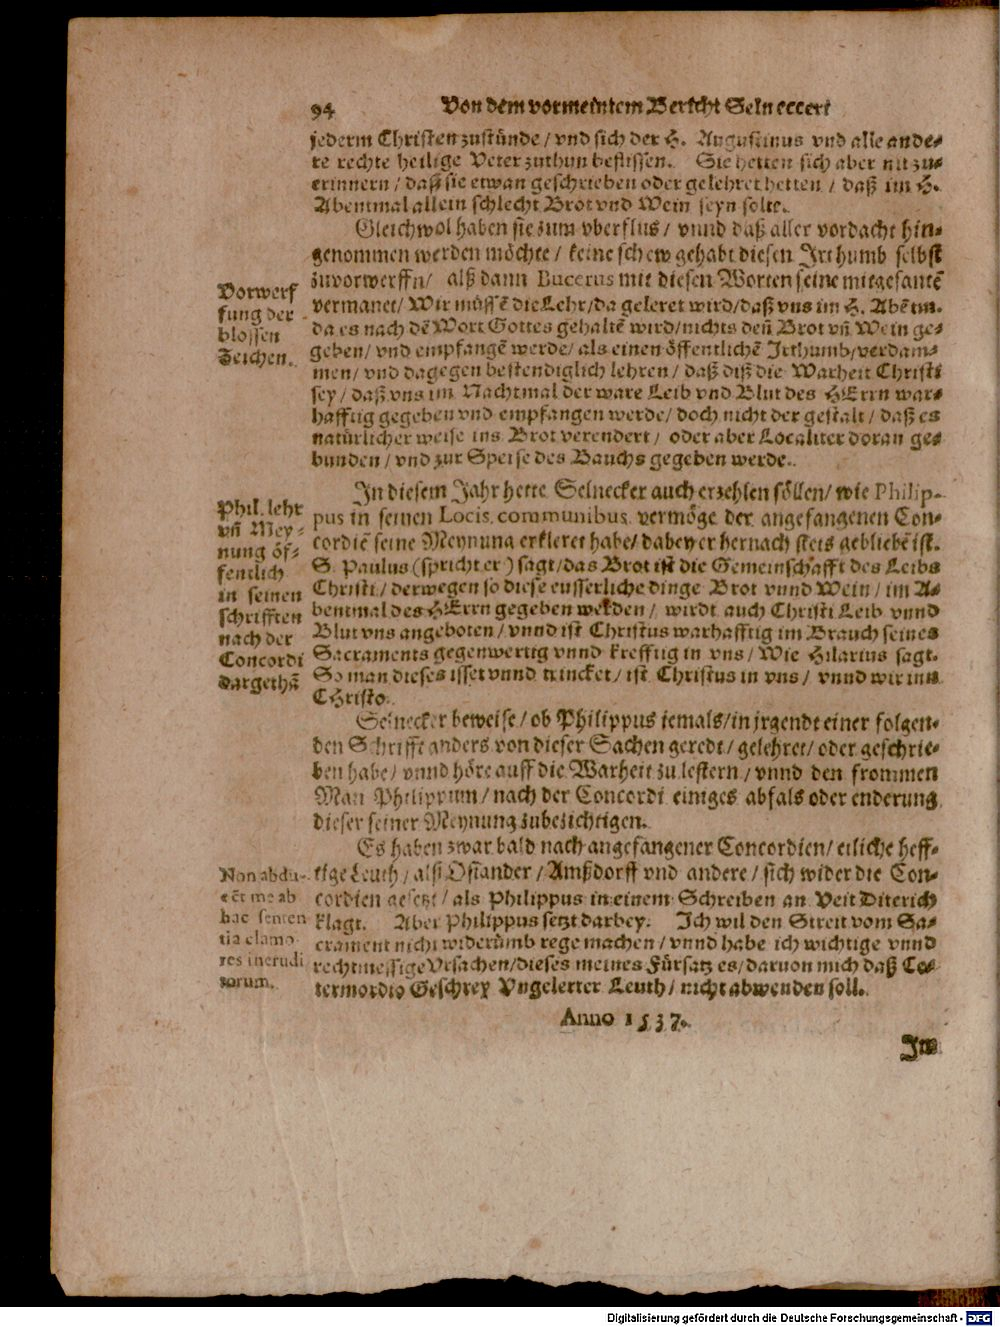 94 Von dem vormeintem Bericht Selneccert
jederm Christen zustünde / vnd sich der H. Augustinus vnd alle ande-
re rechte heilige Veter zuthun beflissen. Sie hetten sich aber nit zu-
erinnern / daß sie etwan geschrieben oder gelehret hetten / daß im H.
Abentmal allein schlecht Brot vnd Wein seyn solte.
Gleichwol haben sie zum vberflus / vnnd daß aller vordacht hin-
genommen werden möchte / keine schew gehabt diesen Irthumb selbst
zuvorwerffn / alß dann Bucerus mit diesen Worten seine mitgesantẽ
vermanet / Wir müssẽ die Lehr / da geleret wird / daß vns im H. Abẽtm.
da es nach dẽ Wort Gottes gehaltẽ wird / nichts deñ Brot vñ Wein ge-
geben / vnd empfangẽ werde / als einen öffentlichẽ Irthumb / verdam-
men / vnd dagegen bestendiglich lehren / daß diß die Warheit Christi
sey / daß vns im Nachtmal der ware Leib vnd Blut des HErrn war-
hafftig gegeben vnd empfangen werde / doch nicht der gestalt / daß es
natürlicher weise ins Brot verendert / oder aber Localiter doran ge-
bunden / vnd zur Speise des Bauchs gegeben werde.
Vorwerf
fung der
blossen
Zeichen.
In diesem Jahr hette Selnecker auch erzehlen söllen / wie Philip-
pus in seinen Locis communibus vermöge der angefangenen Con-
cordiẽ seine Meynung erkleret habe / dabey er hernach stets gebliebẽ ist.
S. Paulus (spricht er) sagt / das Brot ist die Gemeinschafft des Leibs
Christi / derwegen so diese eusserliche dinge Brot vnnd Wein / im A-
bentmal des HErrn gegeben werden / wirdt auch Christi Leib vnnd
Blut vns angeboten / vnnd ist Christus warhafftig im Brauch seines
Sacraments gegenwertig vnnd krefftig in vns / Wie Hilarius sagt.
So man dieses isset vnnd trincket / ist Christus in vns / vnnd wir inn
CHristo.
Phil. lehr
vñ Mey-
nung öf-
fentlich
in seinen
schrifften
nach der
Concordi
dargethã
Selnecker beweise / ob Philippus iemals / in jrgendt einer folgen-
den Schrifft anders von dieser Sachen geredt / gelehret / oder geschrie-
ben habe / vnnd höre auff die Warheit zu lestern / vnnd den frommen
Man Philippum / nach der Concordi einiges abfals oder enderung
dieser seiner Meynung zubezichtigen.
Es haben zwar bald nach angefangener Concordien / etliche heff-
tige Leuth / als Osiander / Amßdorff vnd andere / sich wider die Con-
cordien gesetzt / als Philippus in einem Schreiben an Veit Diterich
klagt. Aber Philippus setzt darbey. Ich wil den Streit vom Sa-
crament nicht widerumb rege machen / vnnd habe ich wichtige vnnd
rechtmessige Vrsachen / dieses meines Fürsatzes / daruon mich daß Ce-
termordio Geschrey Vngelerter Leuth / nicht abwenden soll.
Non abdu-
cẽt me ab
hac senten
tia clamo
res inerudi
torum.
Anno 1537.
Im
Digitalisierung gefördert durch die Deutsche Forschungsgemeinschaft - DFG